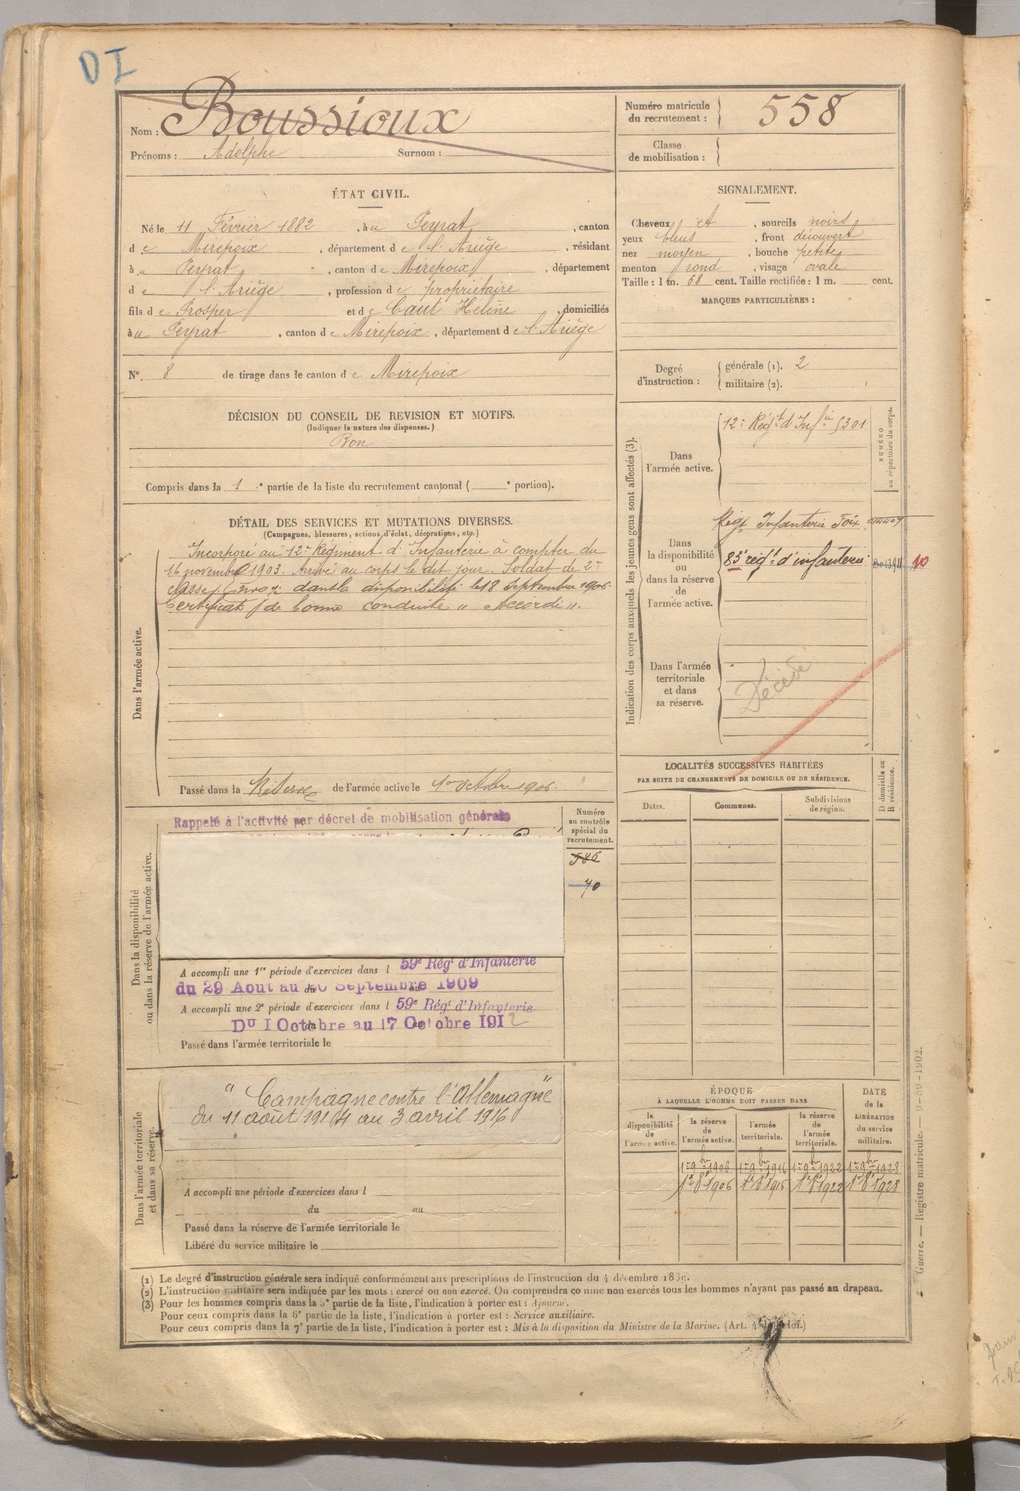 DI
Nom : Boussioux
Prénoms : Adolphe Surnom :
Numéro matricule du recrutement : 558
Classe de mobilisation :
ÉTAT CIVIL.
Né le 11 Février 1882, à u Peyrat, canton
d e Mirepoix, département d e l'Ariège, résidant
à u Peyrat, canton d e Mirepoix, département
d e l'Ariège, profession d e propriétaire
fils d e Prosper et d e Caut Hélène, domiciliés
à u Peyrat, canton d e Mirepoix, département d e l'Ariège
N° 8 de tirage dans le canton d e Mirepoix
SIGNALEMENT.
Cheveux et, sourcils noirs
yeux bleus, front découvert
nez moyen, bouche petite
menton rond, visage ovale
Taille : 1 m. 68 cent. Taille rectifiée : 1 m. cent.
MARQUES PARTICULIÈRES :
Degré d'instruction : générale (1). 2
militaire (2).
DÉCISION DU CONSEIL DE REVISION ET MOTIFS.
(Indiquer la nature des dispenses.)
Bon
Compris dans la 1e partie de la liste du recrutement cantonal ( e portion).
DÉTAIL DES SERVICES ET MUTATIONS DIVERSES.
(Campagnes, blessures, actions d'éclat, décorations, etc.)
Dans l'armée active.
Incorporé au 12e Régiment d'Infanterie à compter du
16 novembre 1903. Arrivé au corps le dit jour. Soldat de 2e
classe. Envoyé dans la disponibilité le 18 Septembre 1906.
Certificat de bonne conduite "Accordé".
Passé dans la Réserve de l'armée active le 1er octobre 1906.
Indication des corps auxquels les jeunes gens sont affectés (3).
NUMÉRO au répertoire du corps.
Dans l'armée active.
12e Régt d'Infie 5301
Dans la disponibilité ou dans la réserve de l'armée active.
Régt Infanterie Foix
83e régt d'infanterie 10
Dans l'armée territoriale et dans sa réserve.
Décédé
LOCALITÉS SUCCESSIVES HABITÉES
PAR SUITE DE CHANGEMENTS DE DOMICILE OU DE RÉSIDENCE.
Dates. Communes. Subdivisions de région. D domicile ou R résidence.
Dans la disponibilité ou dans la réserve de l'armée active.
Rappelé à l'activité par décret de mobilisation générale
Numéro au contrôle spécial du recrutement.
586
70
A accompli une 1re période d'exercices dans l 59e Régt d'Infanterie
du 29 Août au 20 Septembre 1909
A accompli une 2e période d'exercices dans l 59e Régt d'Infanterie
Du 1 Octobre au 17 Octobre 1912
Passé dans l'armée territoriale le
Dans l'armée territoriale et dans sa réserve.
"Campagne contre l'Allemagne"
du 11 août 1914 au 3 avril 1916
A accompli une période d'exercices dans l
du au
Passé dans la réserve de l'armée territoriale le
Libéré du service militaire le
ÉPOQUE
À LAQUELLE L'HOMME DOIT PASSER DANS
la disponibilité de l'armée active. la réserve de l'armée active. l'armée territoriale. la réserve de l'armée territoriale.
DATE de la LIBÉRATION du service militaire.
1er 9bre 1906 1er 9bre 1916 1er 9bre 1922 1er 9bre 1928
1er 8bre 1906 1er 8bre 1916 1er 8bre 1922 1er 8bre 1928
(1) Le degré d'instruction générale sera indiqué conformément aux prescriptions de l'instruction du 4 décembre 1889.
(2) L'instruction militaire sera indiquée par les mots : exercé ou non exercé. On comprendra comme non exercés tous les hommes n'ayant pas passé au drapeau.
(3) Pour les hommes compris dans la 5e partie de la liste, l'indication à porter est : Ajourné.
Pour ceux compris dans la 6e partie de la liste, l'indication à porter est : Service auxiliaire.
Pour ceux compris dans la 7e partie de la liste, l'indication à porter est : Mis à la disposition du Ministre de la Marine. (Art.
Guerre. — Registre matricule. — 9-89-1902.